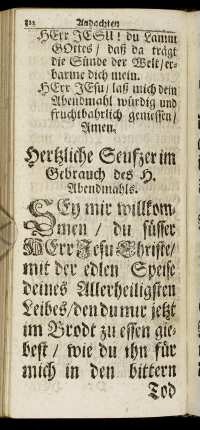 822 Andachten
HErr JESU! du Lamm
GOttes / daß da trägt
die Sünde der Welt / er-
barme dich mein.
HErr JEsu / laß mich dein
Abendmahl würdig und
fruchtbahrlich geniessen /
Amen.
Hertzliche Seufzer im
Gebrauch des H.
Abendmahls.
SEy mir willkom-
men / du süsser
HErr Jesu Christe /
mit der edlen Speise
deines Allerheiligsten
Leibes / den du mir jetzt
im Brodt zu essen gie-
best / wie du ihn für
mich in den bittern
Tod